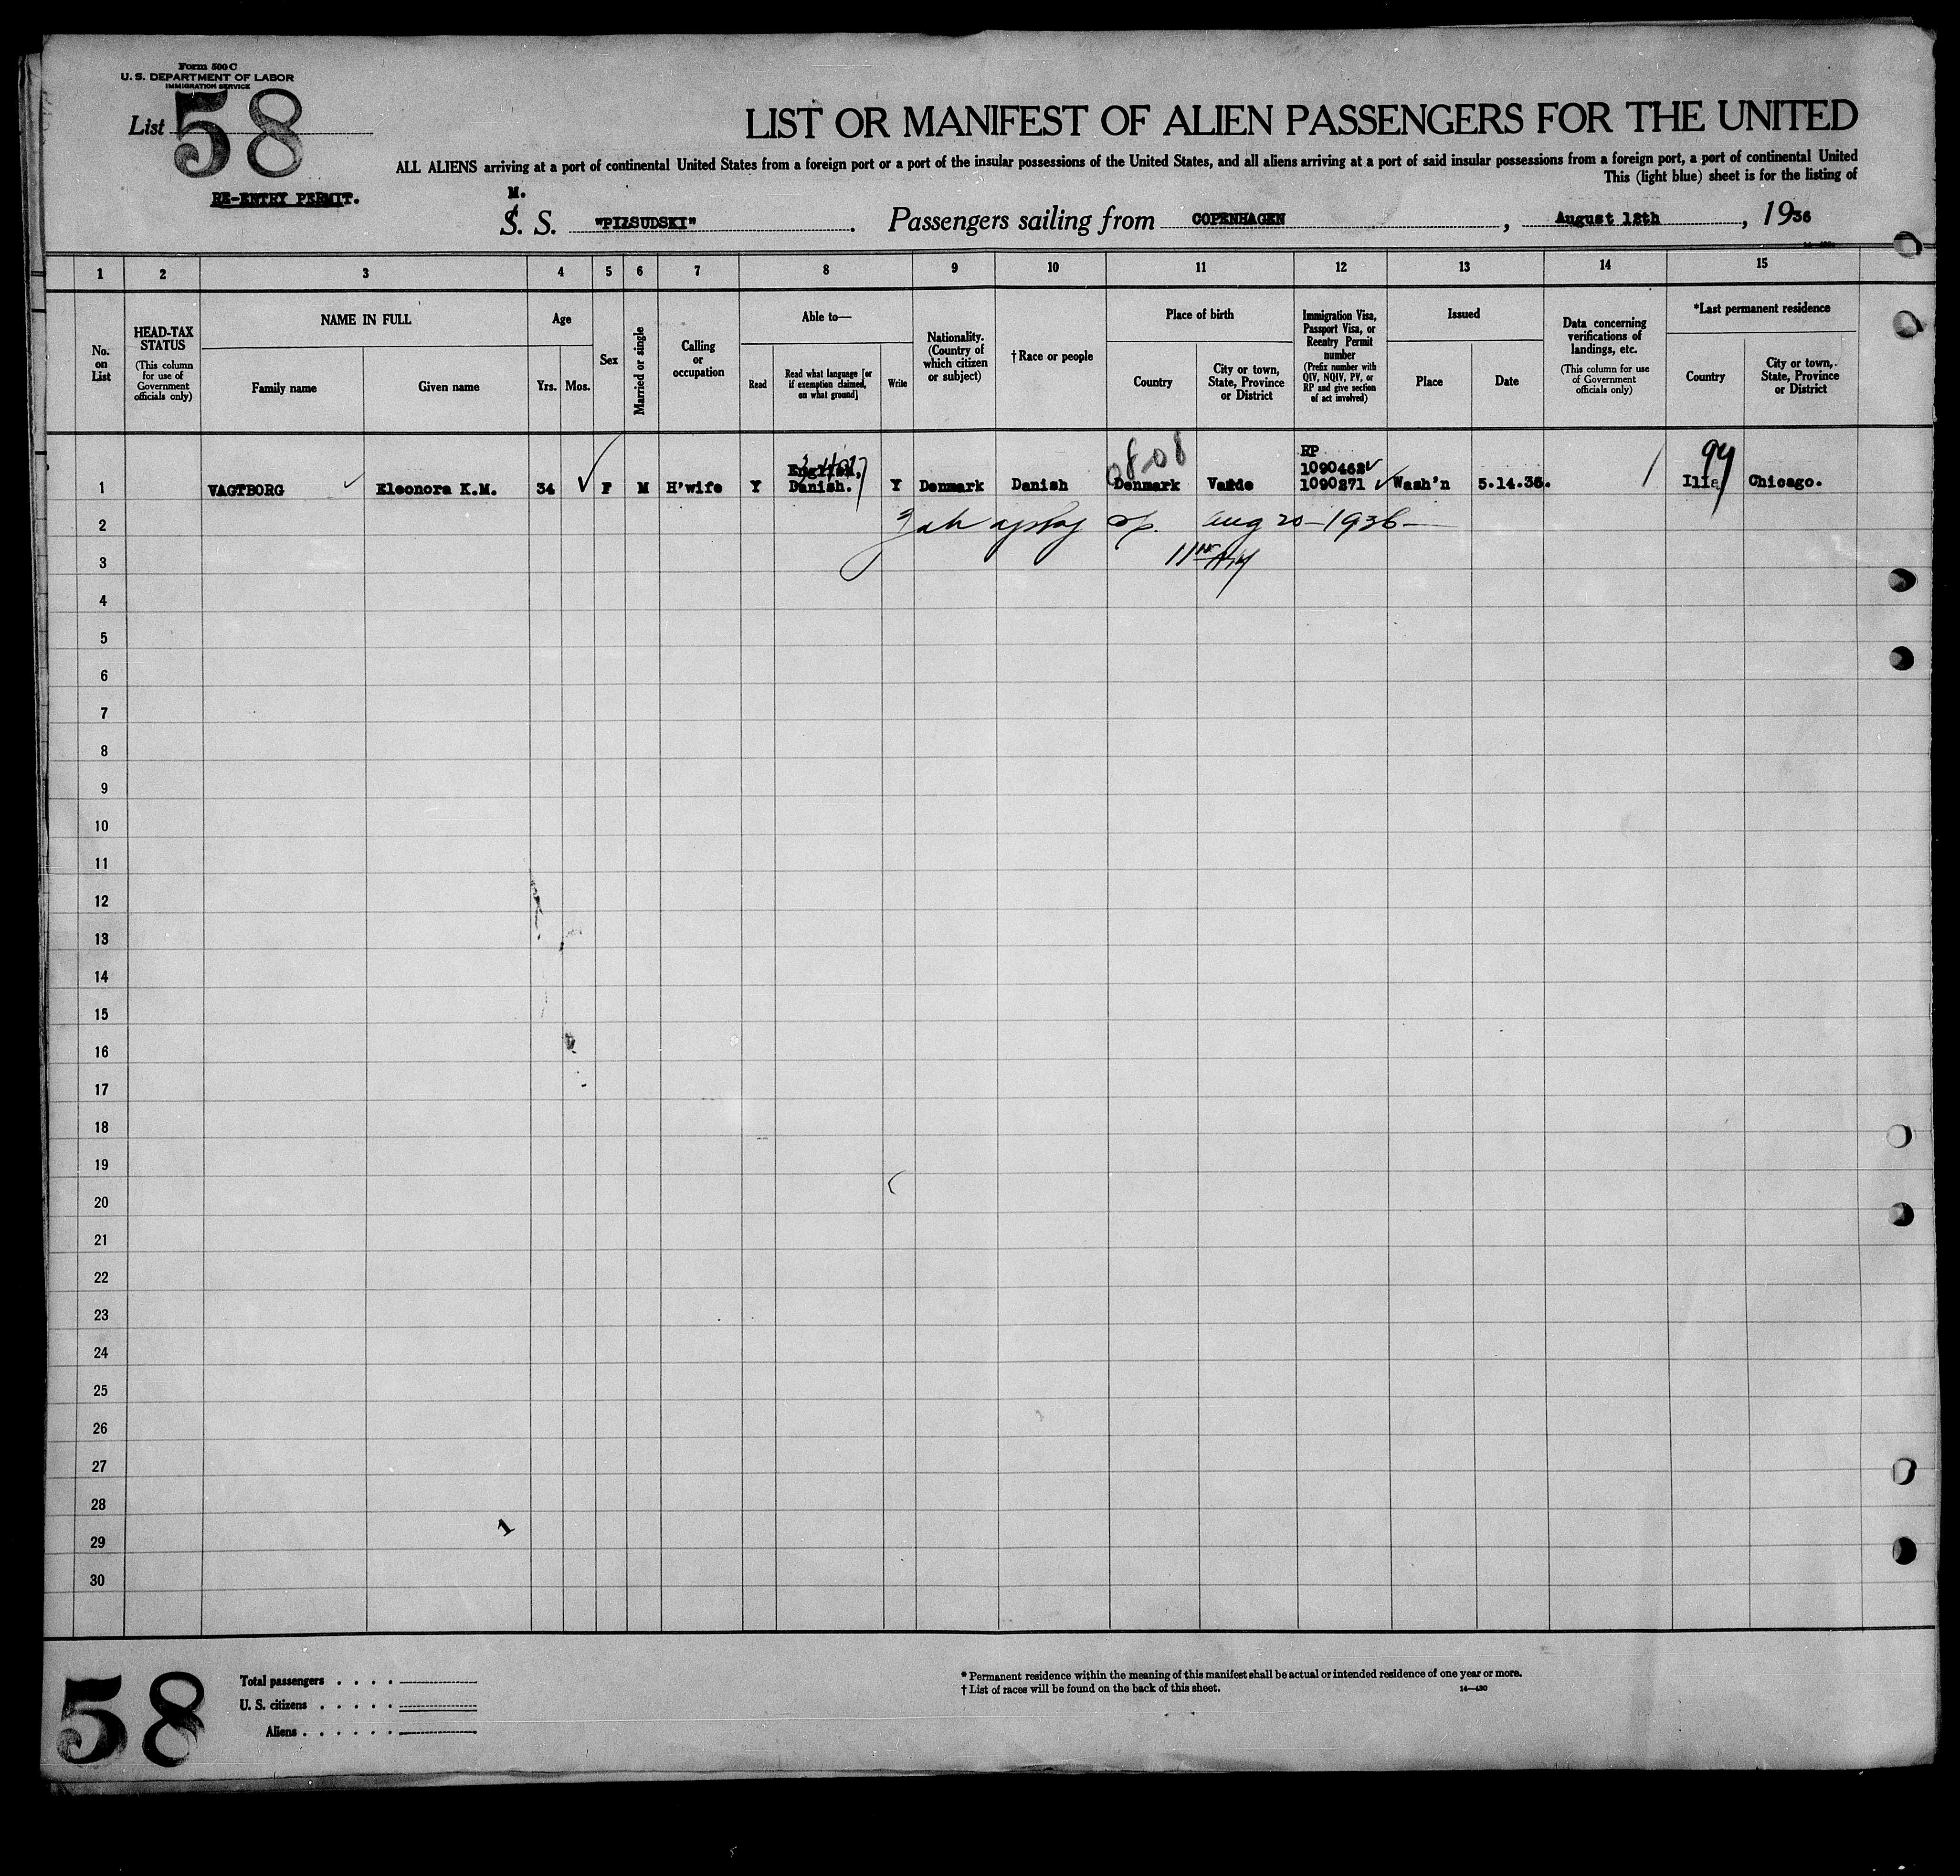 Form 500 C
U. S. DEPARTMENT OF LABOR
IMMIGRATION SERVICE
List 58
LIST OR MANIFEST OF ALIEN PASSENGERS FOR THE UNITED
ALL ALIENS arriving at a port of continental United States from a foreign port or a port of the insular possessions of the United States, and all aliens arriving at a port of said insular possessions from a foreign port, a port of continental United
This (light blue) sheet is for the listing of
RE-ENTRY PERMIT.
M.
S. S. "PIŁSUDSKI". Passengers sailing from COPENHAGEN, August 12th, 1936
1 2 3 4 5 6 7 8 9 10 11 12 13 14 15
No. on List
HEAD-TAX STATUS
(This column for use of Government officials only)
NAME IN FULL
Family name
Given name
Age
Yrs.
Mos.
Sex
Married or single
Calling or occupation
Able to—
Read
Read what language [or if exemption claimed, on what ground]
Write
Nationality. (Country of which citizen or subject)
†Race or people
Place of birth
Country
City or town, State, Province or District
Immigration Visa, Passport Visa, or Reentry Permit number
(Prefix number with QIV, NQIV, PV, or RP and give section of act involved)
Issued
Place
Date
Data concerning verifications of landings, etc.
(This column for use of Government officials only)
*Last permanent residence
Country
City or town, State, Province or District
0808
RP
99
English,
1090462
1 VAGTBORG Eleonora K.M. 34 F M H'wife Y Danish. Y Denmark Danish Denmark Varde 1090271 Wash'n 5.14.36. Ills Chicago.
2 Aug 20-1936-
3
4
5
6
7
8
9
10
11
12
13
14
15
16
17
18
19
20
21
22
23
24
25
26
27
28
1
29
30
58
Total passengers
U. S. citizens
Aliens
* Permanent residence within the meaning of this manifest shall be actual or intended residence of one year or more.
† List of races will be found on the back of this sheet.
14—430